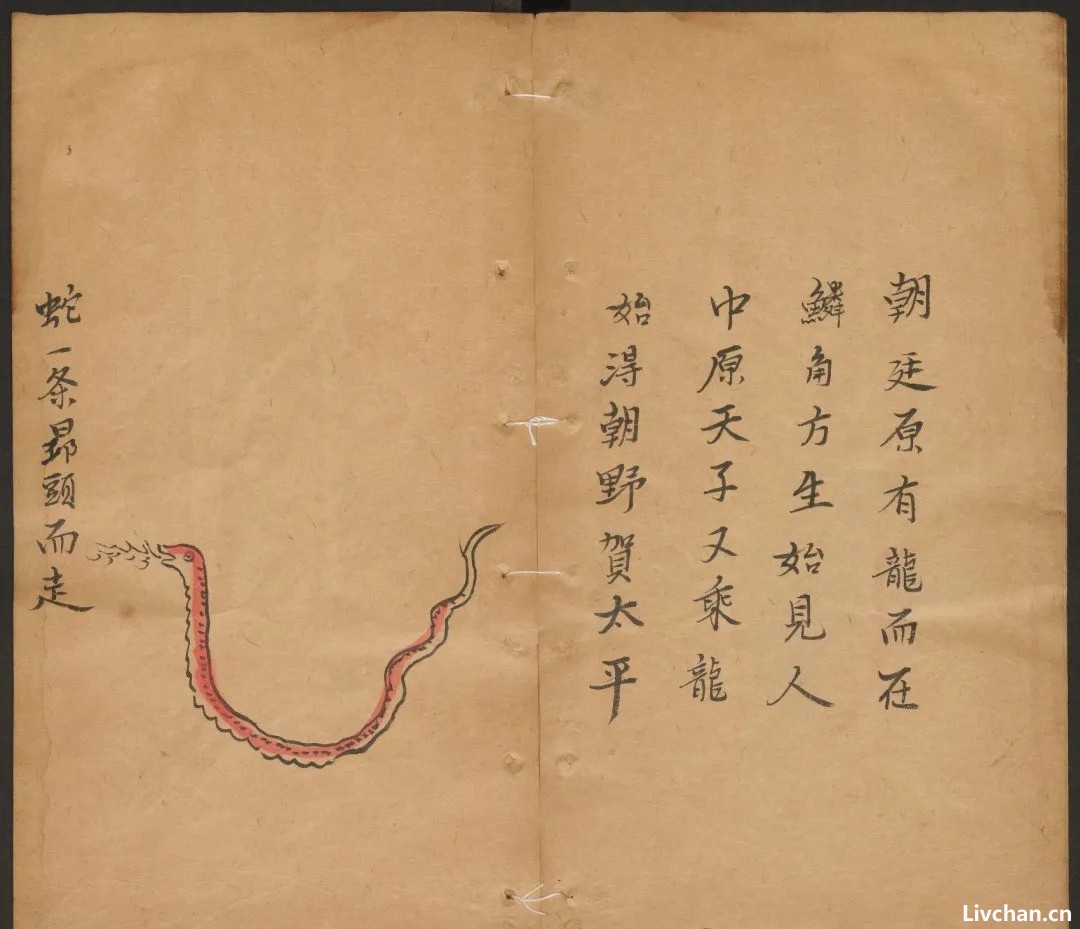 朝廷原有龍而在
鱗角方生始見人
中原天子又乘龍
始淂朝野賀太平
蛇一条昻頭而走
Livchan.cn